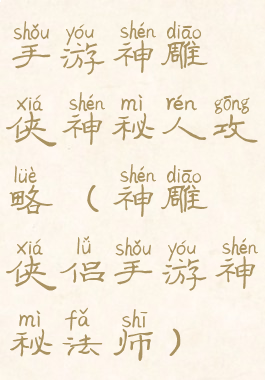 shǒu yóu shén diāo
手游神雕
xiá shén mì rén gōng
侠神秘人攻
lüè shén diāo
略（神雕
xiá lǚ shǒu yóu shén
侠侣手游神
mì fǎ shī
秘法师）